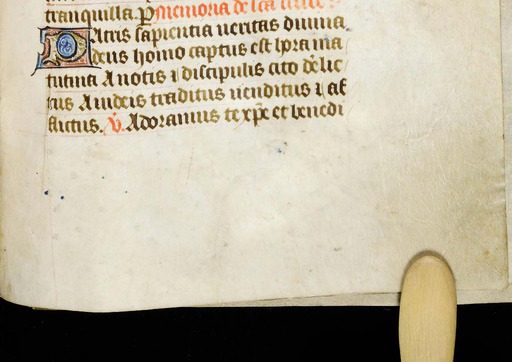 tranquilla. P Memoria de sca cruce
Patris sapientia ueritas diuina.
deus homo captus est hora ma
tutina A notis ⁊ discipulis cito dereli
ctus A iudeis traditus uenditus ⁊ af
flictus. ℣. Adoramus te xp̄e et benedi